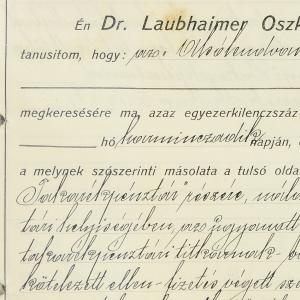 Én Dr. Laubhaimer Oszk
tanusitom, hogy: az Alsólendvai
megkeresésére ma, azaz egyezerkilenczszáz
hó harminczadik napján,
a melynek szószerinti másolata a tulsó olda
Takarékpénztár részére, nála
tári helyiségében, az ugyanott
takarékpénztári titkárnak
kötelezett ellen fizetés végett